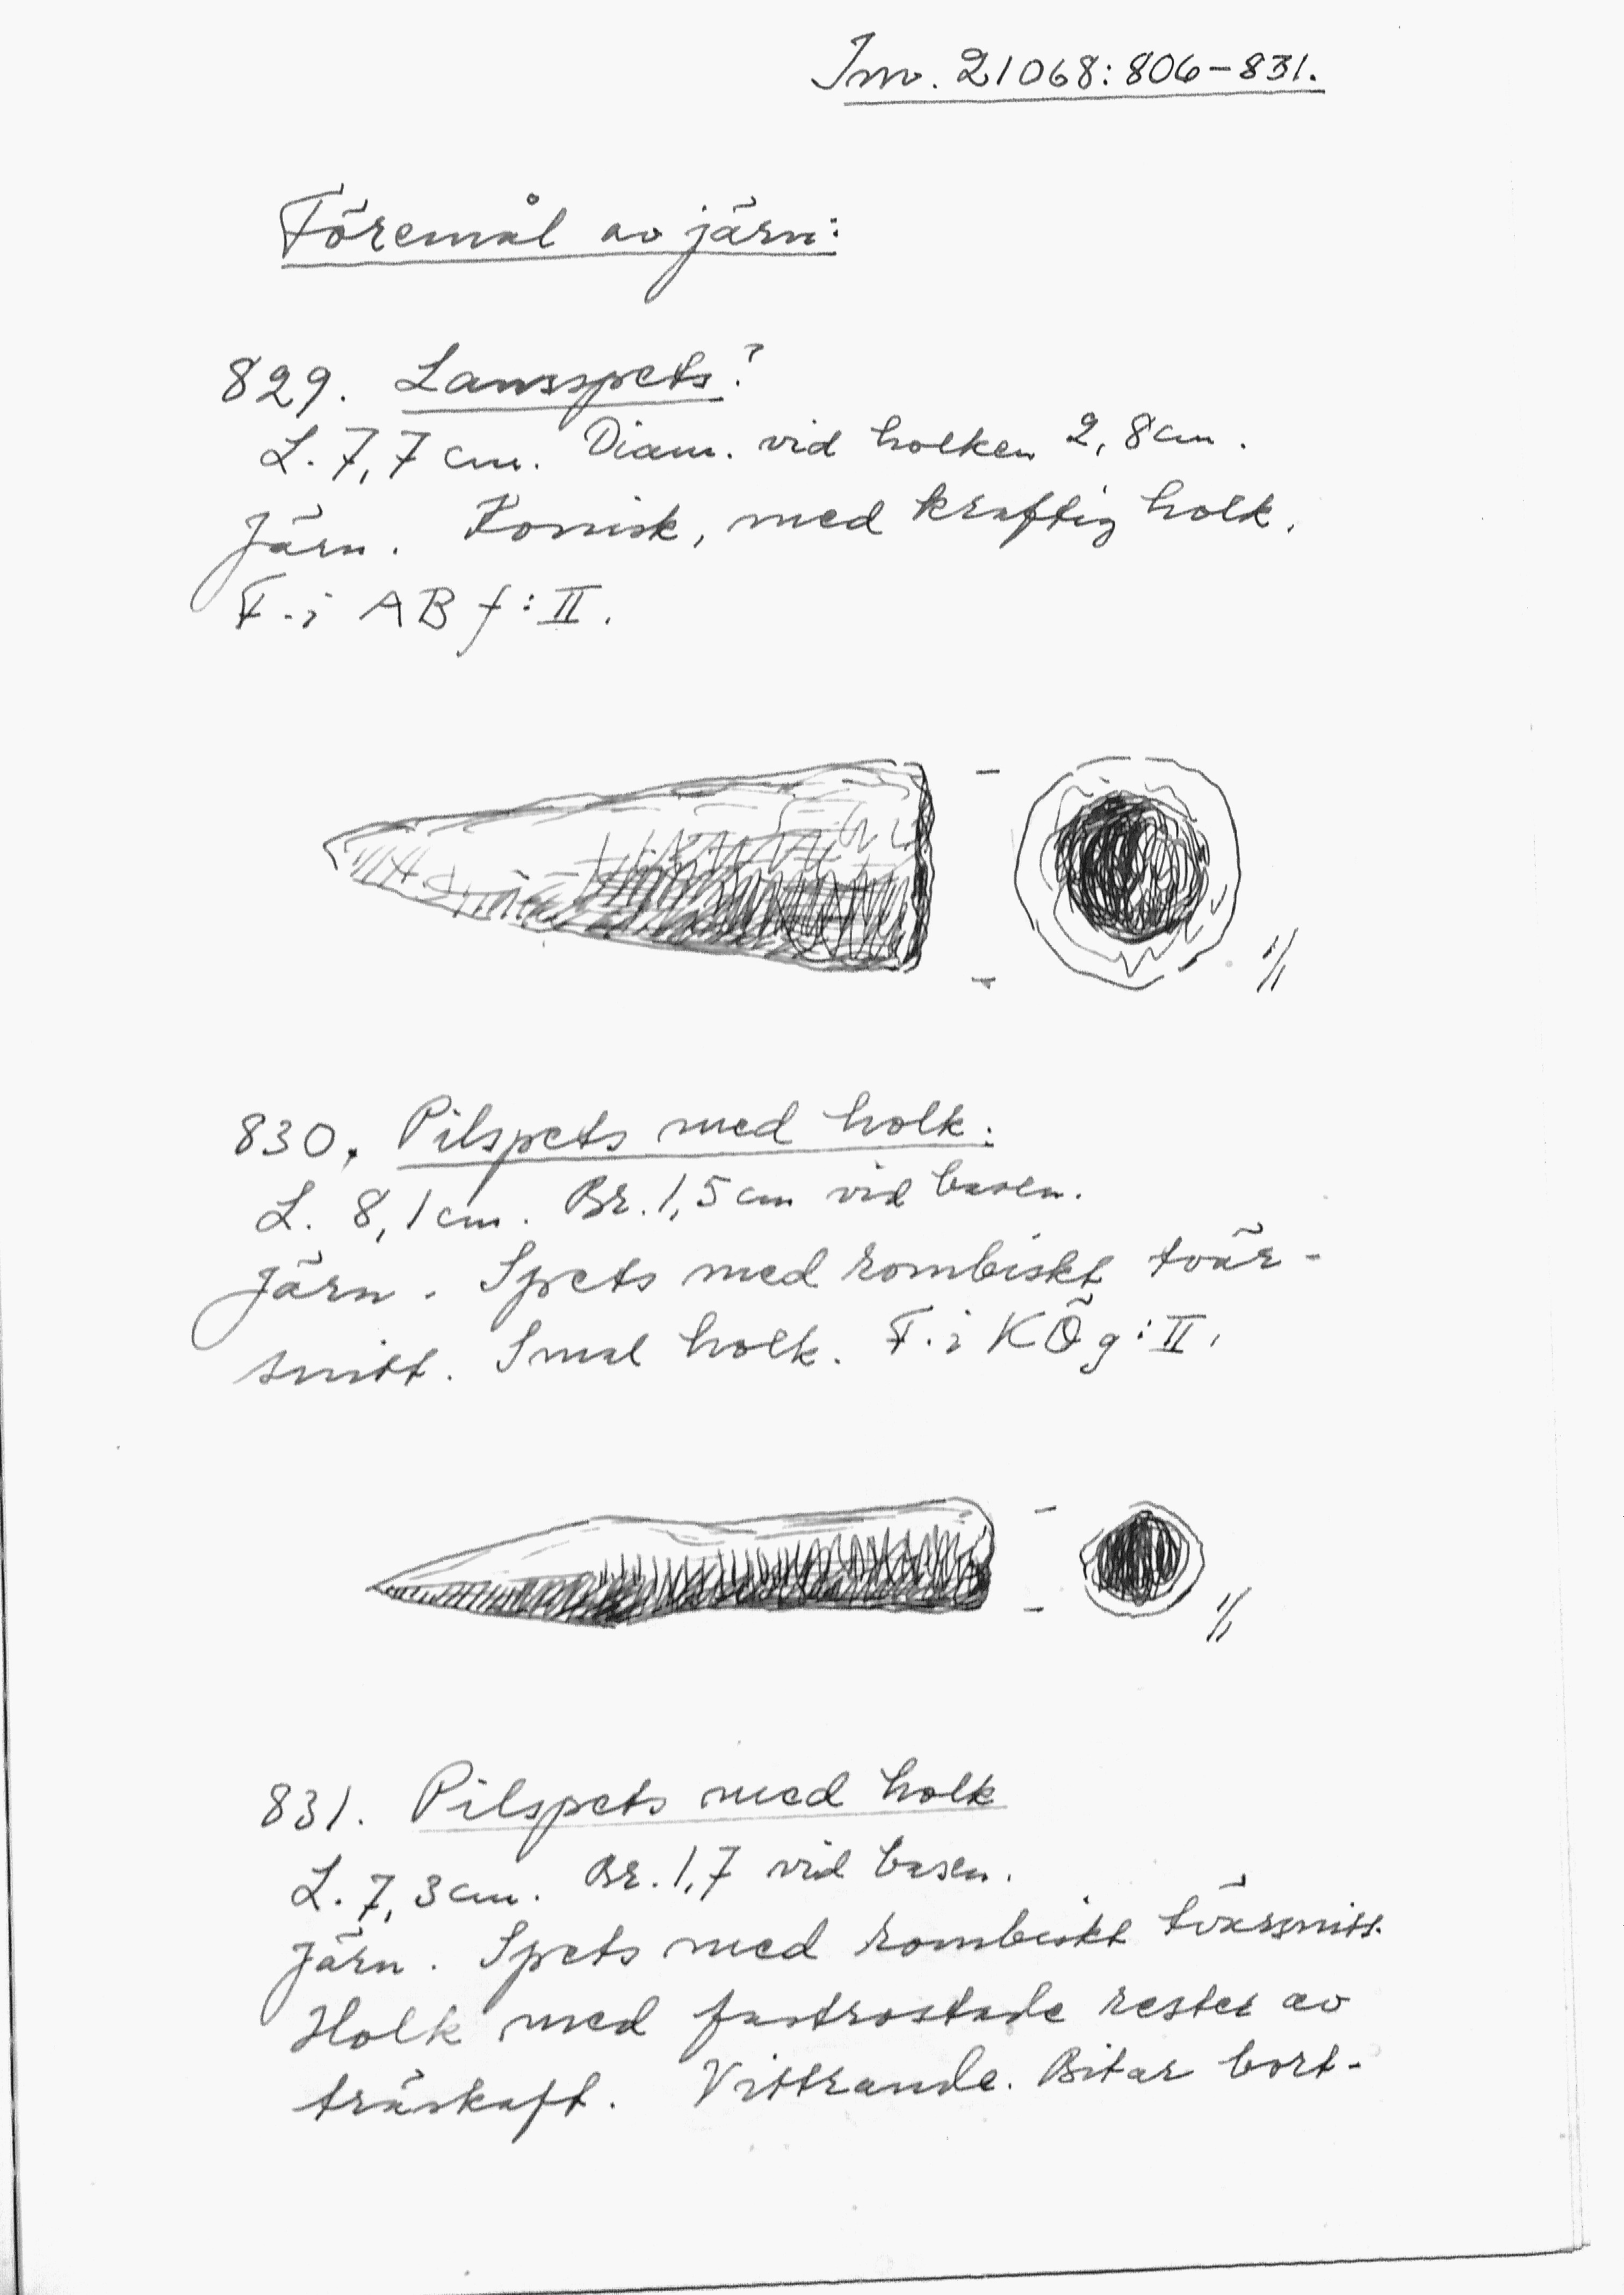 Inv. 21068:806-831.
Föremål av järn:
829. Lansspets?
L. 7,7 cm. Diam. vid holken 2,8 cm.
Järn. Konisk, med kraftig holk.
F. i ABf:II.
1/1
830. Pilspets med holk.
L. 8,1 cm. Br. 1,5 cm vid basen.
Järn. Spets med rombiskt tvär-
snitt. Smal holk. F. i KÖg:II.
1/1
831. Pilspets med holk
L. 7,3 cm. Br. 1,7 vid basen.
Järn. Spets med rombiskt tvärsnitt.
Holk med fastrostade rester av
träskaft. Vittrande. Bitar bort-